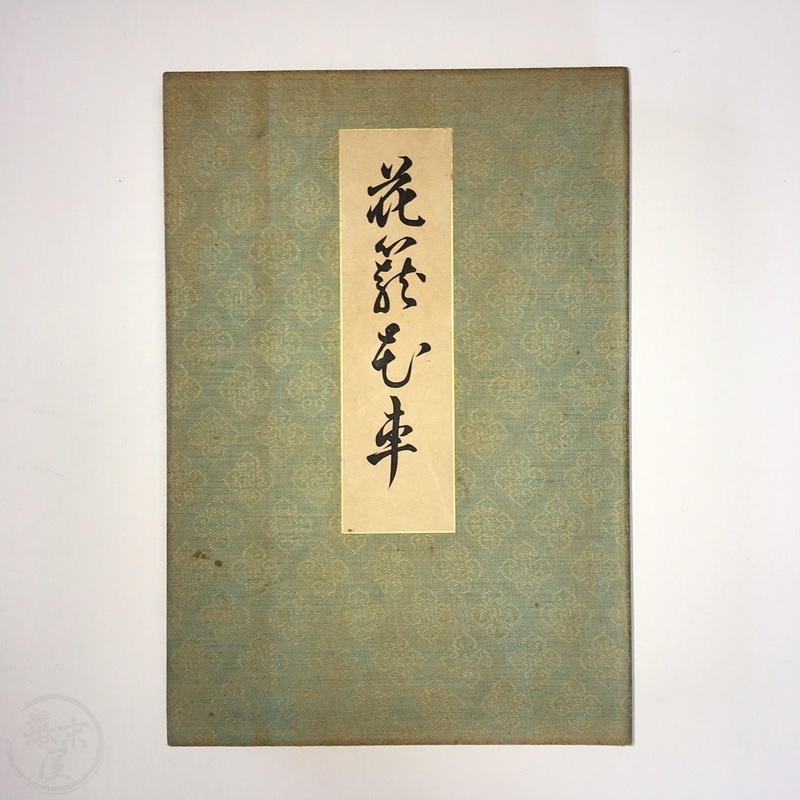 花籠花車
幕末屋